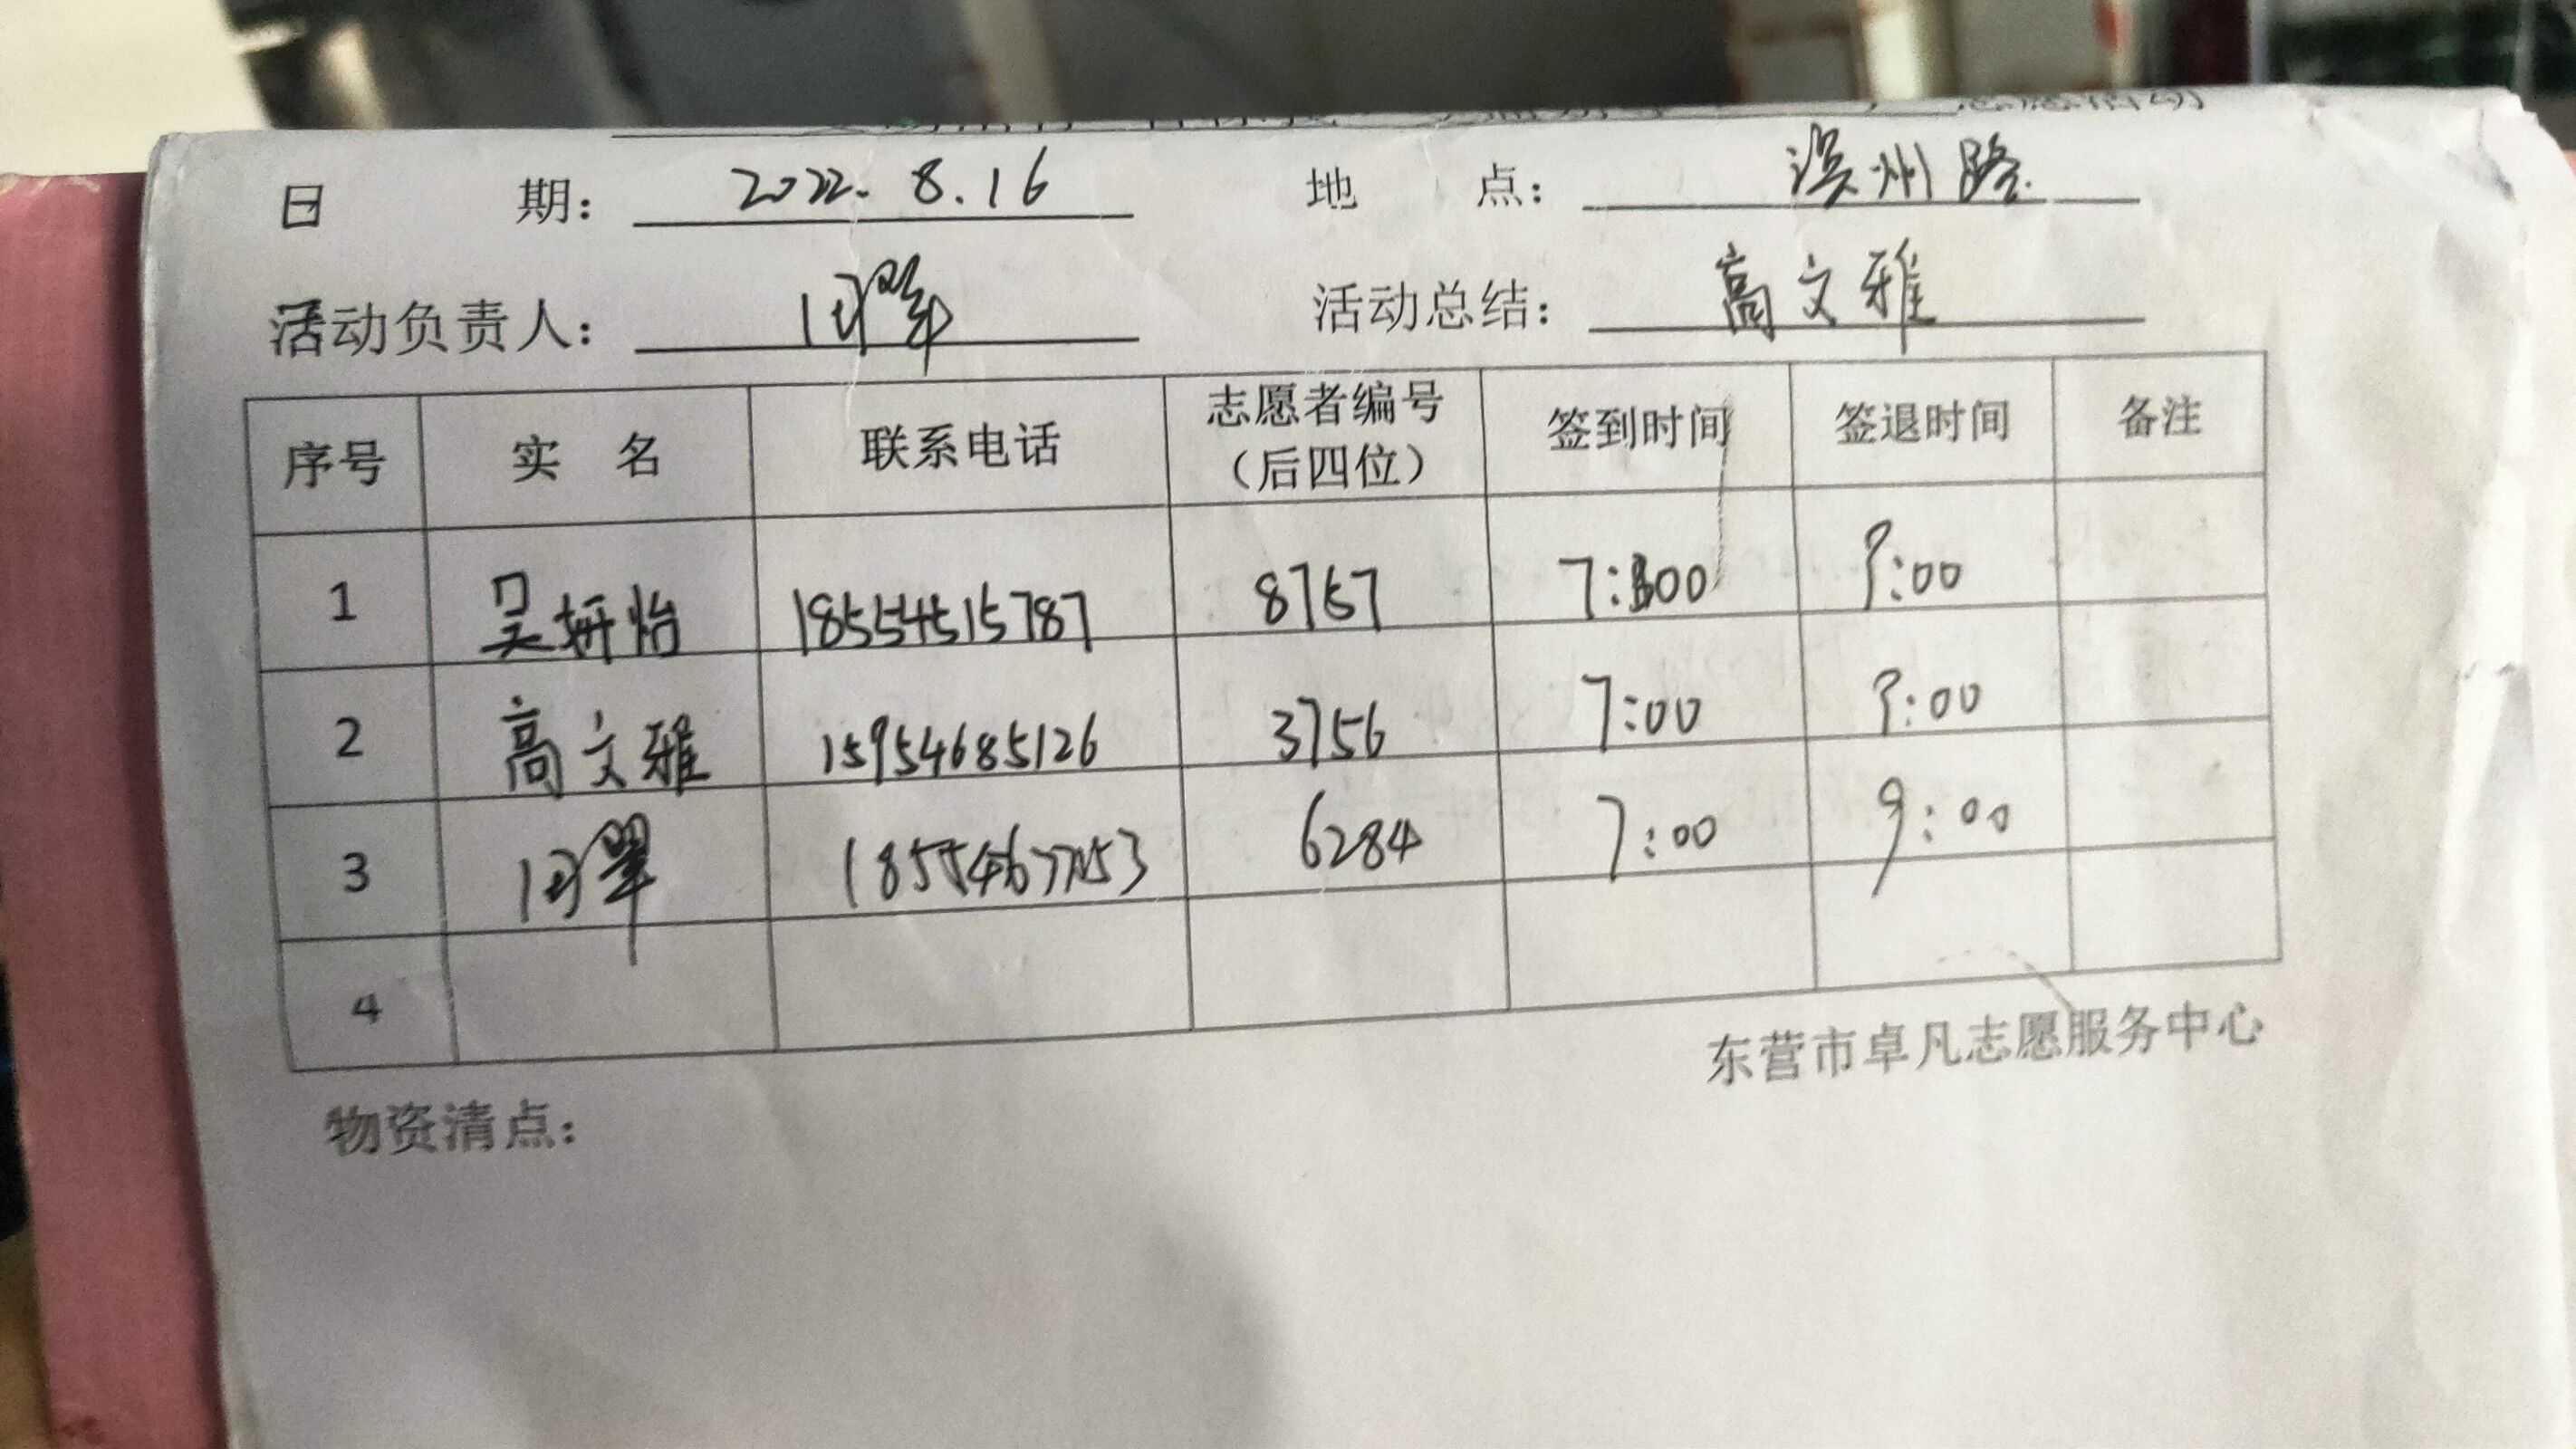 日 期： 2022.8.16 地 点： 滨州路
活动负责人： 活动总结： 高文雅
序号 实 名 联系电话 志愿者编号（后四位） 签到时间 签退时间 备注
1 吴妍怡 18554515787 8757 7:00 9:00
2 高文雅 15954685126 3756 7:00 9:00
3 6284 7:00 9:00
4
东营市卓凡志愿服务中心
物资清点：